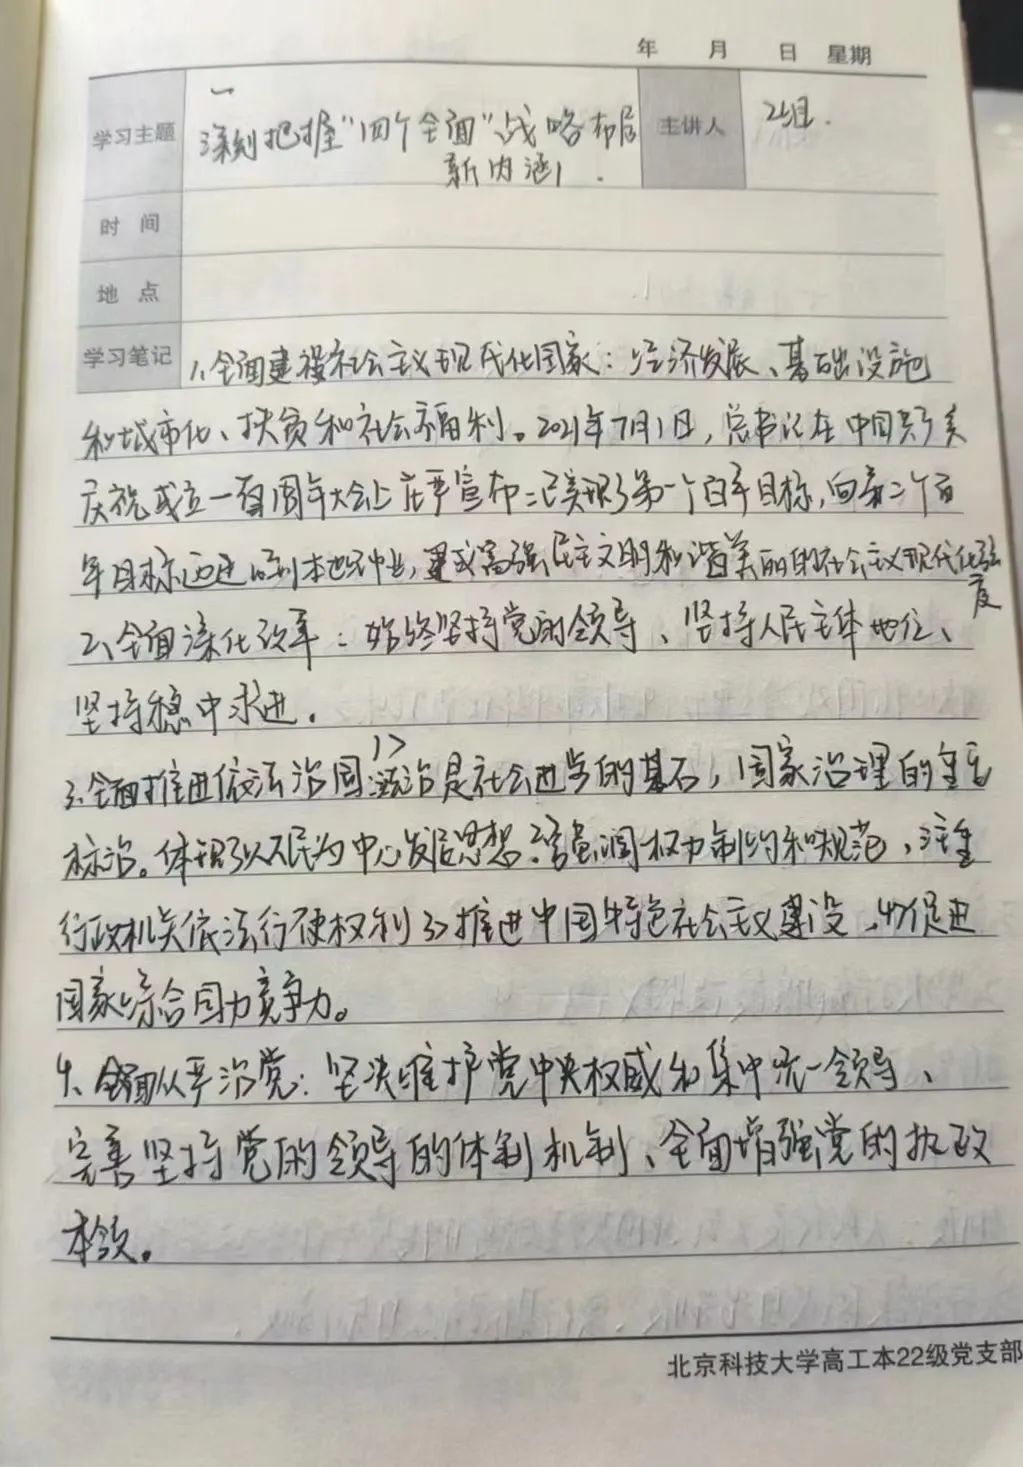 年 月 日 星期
学习主题 一 深刻把握"四个全面"战略布局 主讲人 2组.
新内涵.
时 间
地 点
学习笔记 1、全面建设社会主义现代化国家：经济发展、基础设施
和城市化、扶贫和社会福利。2021年7月1日，总书记在中国共
庆祝成立一百周年大会上庄严宣布：已实现了第一个百年目标，向第二个百
年目标迈进 建成富强民主文明和谐美丽的社会主义现代化强
度
2、全面深化改革：始终坚持党的领导、坚持人民主体地位、
坚持稳中求进。
3、全面推进依法治国：1>法治是社会进步的基石，国家治理的重要
标治。体现了以人民为中心发展思想 强调权力制约和规范、注重
行政机关依法行使权利 3>推进中国特色社会主义建设、4>促进
国家综合国力竞争力。
4、全面从严治党：坚决维护党中央权威和集中统一领导、
完善坚持党的领导的体制机制、全面增强党的执政
本领。
北京科技大学高工本22级党支部